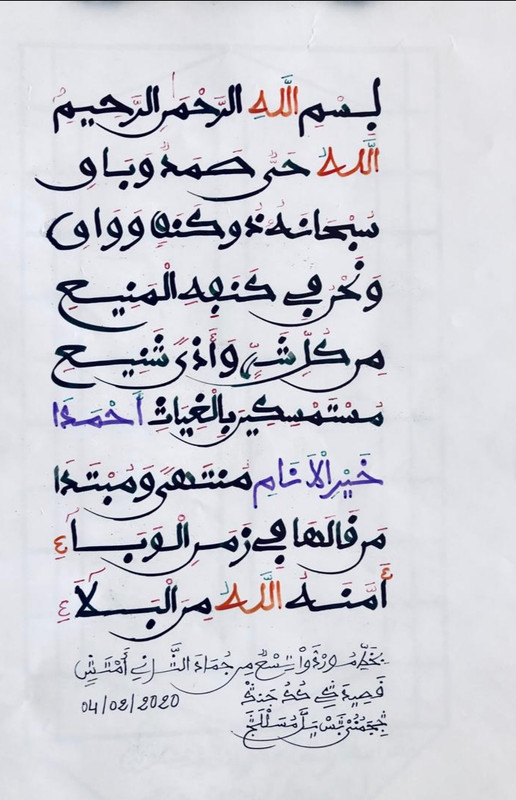 بِسْمِ اللَّهِ الرَّحْمَٰنِ الرَّحِيمِ
اللَّهُ حَيٌّ صَمَدٌ وَبَاقِ
سُبْحَانَهُ ذُو كَنَفٍ وَوَاقِ
وَنَحْنُ فِي كَنَفِهِ الْمَنِيعِ
مِن كُلِّ شَرٍّ وَأَذًى شَنِيعِ
مُسْتَمْسِكِينَ بِالْغِيَاثِ أَحْمَدَا
خَيْرِ الْأَنَامِ مُنتَهًى وَمُبْتَدَا
مَن قَالَهَا فِي زَمَنِ الْوَبَاءِ
أَمَّنَهُ اللَّهُ مِنَ الْبَلَاءِ
بخطّ من
04/02/2020